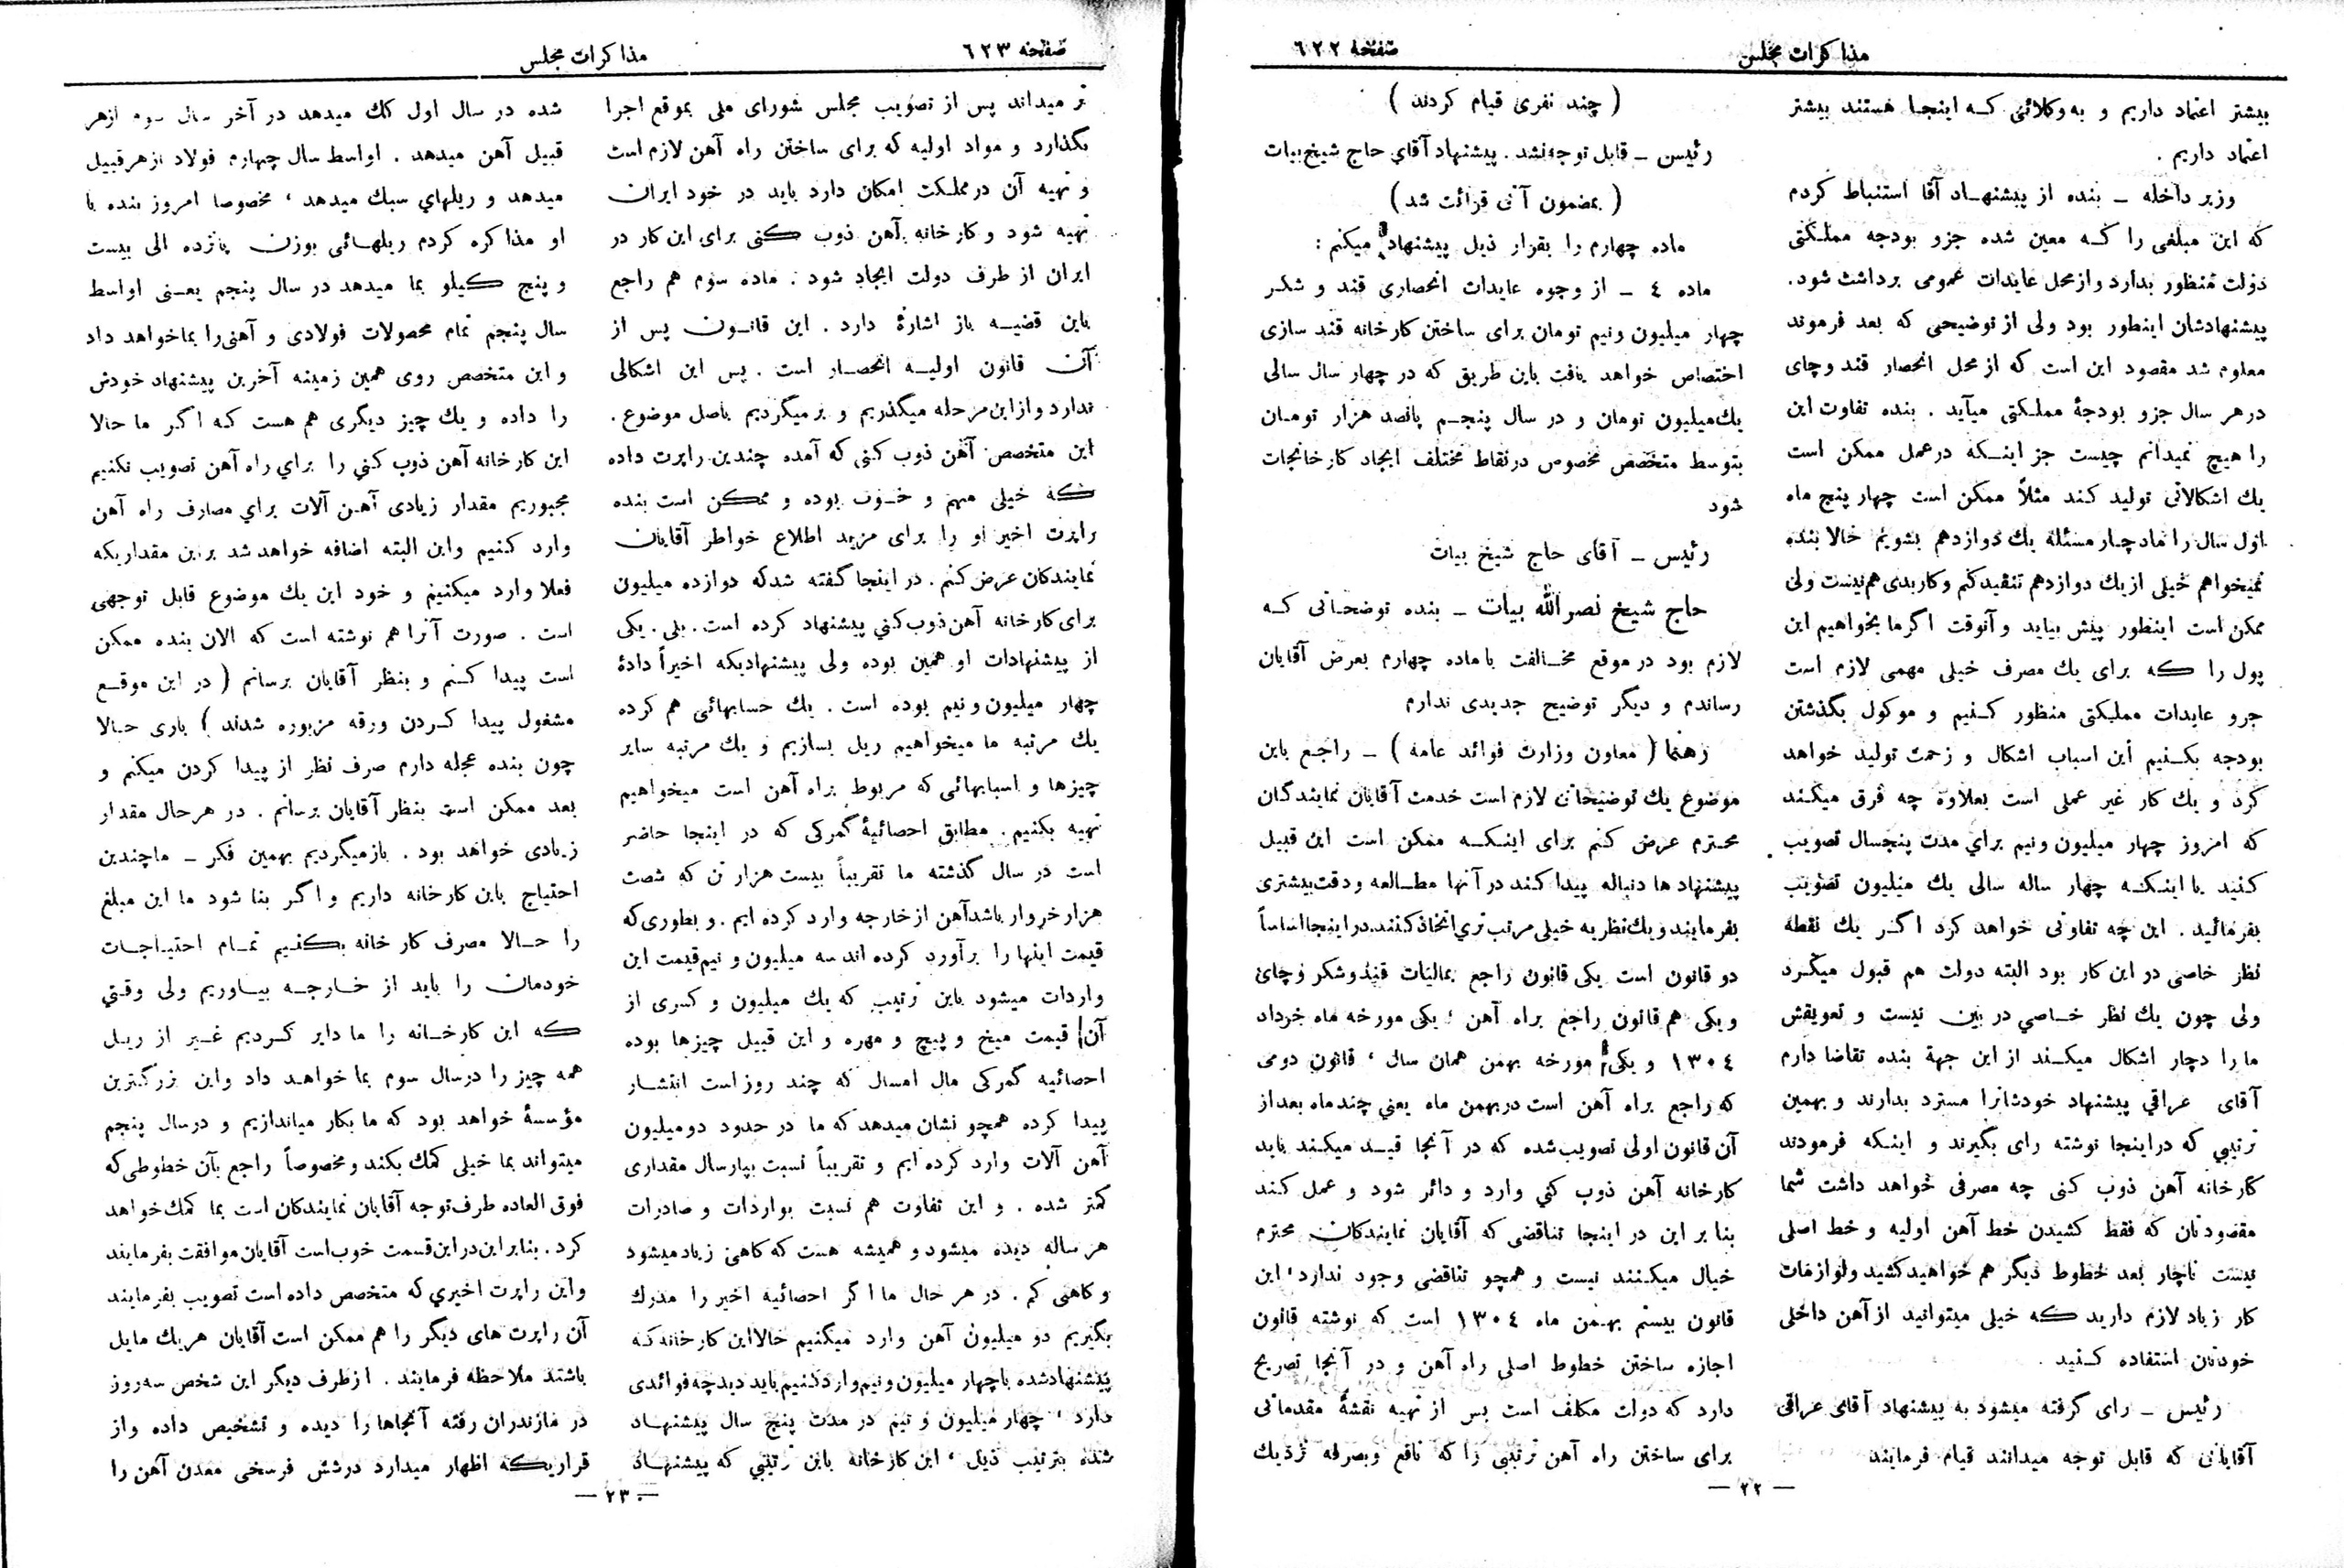 مذاکرات مجلس
صفحه ۶۲۲
بیشتر اعتماد داریم و به وکلائی که اینجا هستند بیشتر
اعتماد داریم .
وزیر داخله ـ بنده از پیشنهاد آقا استنباط کردم
که این مبلغی را که معین شده جزو بودجه مملکتی
دولت منظور بدارد و از محل عایدات عمومی برداشت شود .
پیشنهادشان اینطور بود ولی از توضیحی که بعد فرموند
معلوم شد مقصود این است که از محل انحصار قند و چای
در هر سال جزو بودجهٔ مملکتی میآید . بنده تفاوت این
را هیچ نمیدانم چیست جز اینکه در عمل ممکن است
یك اشکالاتی تولید کند مثلاً ممکن است چهار پنج ماه
اول سال را ما دچار مسئله یك دوازدهم بشویم حالا بنده
نمیخواهم خیلی از یك دوازدهم تنقید کنم و کار بدی هم نیست ولی
ممکن است اینطور پیش بیاید و آنوقت اگر ما بخواهیم این
پول را که برای یك مصرف خیلی مهمی لازم است
جزو عایدات مملکتی منظور کنیم و موکول بگذشتن
بودجه بکنیم این اسباب اشکال و زحمت تولید خواهد
کرد و یك کار غیر عملی است بعلاوه چه فرق میکند
که امروز چهار میلیون و نیم برای مدت پنجسال تصویب
کنید یا اینکه چهار ساله سالی یك میلیون تصویب
بفرمائید . این چه تفاوتی خواهد کرد اگر یك نقطه
نظر خاصی در این کار بود البته دولت هم قبول میکرد
ولی چون یك نظر خاصی در بین نیست و تعویقش
ما را دچار اشکال میکند از این جهة بنده تقاضا دارم
آقای عراقی پیشنهاد خودشانرا مسترد بدارند و بهمین
ترتیبی که در اینجا نوشته رای بگیرند و اینکه فرمودند
کارخانه آهن ذوب کنی چه مصرفی خواهد داشت شما
مقصودتان که فقط کشیدن خط آهن اولیه و خط اصلی
نیست ناچار بعد خطوط دیگر هم خواهید کشید ولوازمات
کار زیاد لازم دارید که خیلی میتوانید از آهن داخلی
خودتان استفاده کنید .
رئیس ـ رای گرفته میشود به پیشنهاد آقای عراقی
آقایانی که قابل توجه میدانند قیام فرمایند
( چند نفری قیام کردند )
رئیس ـ قابل توجه نشد . پیشنهاد آقای حاج شیخ بیات
( بمضمون آتی قرائت شد )
ماده چهارم را بقرار ذیل پیشنهاد میکنم :
ماده ٤ ـ از وجوه عایدات انحصاری قند و شکر
چهار میلیون ونیم تومان برای ساختن کارخانه قند سازی
اختصاص خواهد یافت باین طریق که در چهار سال سالی
یك میلیون تومان و در سال پنجم پانصد هزار تومان
بتوسط متخصص مخصوص در نقاط مختلف ایجاد کارخانجات
شود
رئیس ـ آقای حاج شیخ بیات
حاج شیخ نصرالله بیات ـ بنده توضحاتی که
لازم بود در موقع مخالفت با ماده چهارم بعرض آقایان
رساندم و دیگر توضیح جدیدی ندارم
رهنما ( معاون وزارت فوائد عامه ) ـ راجع باین
موضوع یك توضیحاتی لازم است خدمت آقایان نمایندگان
محترم عرض کنم برای اینکه ممکن است این قبیل
پیشنهاد ها دنباله پیدا کند در آنها مطالعه و دقت بیشتری
بفرمایند و یك نظریه خیلی مرتب تری اتخاذ کنند. در اینجا اساساً
دو قانون است یکی قانون راجع بمالیات قند و شکر و چای
و یکی هم قانون راجع براه آهن ؛ یکی مورخه ماه خرداد
۱۳۰٤ و یکی مورخه بهمن همان سال ، قانون دومی
که راجع براه آهن است در بهمن ماه یعنی چند ماه بعد از
آن قانون اولی تصویب شده که در آنجا قید میکند باید
کارخانه آهن ذوب کنی وارد و دائر شود و عمل کند
بنا بر این در اینجا تناقضی که آقایان نمایندگان محترم
خیال میکنند نیست و همچو تناقضی وجود ندارد ، این
قانون بیستم بهمن ماه ۱۳۰٤ است که نوشته قانون
اجازه ساختن خطوط اصلی راه آهن و در آنجا تصریح
دارد که دولت مکلف است پس از تهیه نقشهٔ مقدماتی
برای ساختن راه آهن ترتیبی را که نافع و بصرفه نزدیك
— ۲۲ —
صفحه ۶۲۳
مذاکرات مجلس
تر میداند پس از تصویب مجلس شورای ملی بموقع اجرا
بگذارد و مواد اولیه که برای ساختن راه آهن لازم است
و تهیه آن در مملکت امکان دارد باید در خود ایران
تهیه شود و کارخانه آهن ذوب کنی برای این کار در
ایران از طرف دولت ایجاد شود . ماده سوم هم راجع
باین قضیه باز اشارهٔ دارد . این قانون پس از
آن قانون اولیه انحصار است . پس این اشکالی
ندارد و از این مرحله میگذریم و بر میگردیم باصل موضوع .
این متخصص آهن ذوب کنی که آمده چندین راپرت داده
که خیلی مهم و خوب بوده و ممکن است بنده
راپرت اخیر او را برای مزید اطلاع خواطر آقایان
نمایندکان عرض کنم . در اینجا گفته شد که دوازده میلیون
برای کارخانه آهن ذوب کنی پیشنهاد کرده است . بلی . یکی
از پیشنهادات او همین بوده ولی پیشنهادیکه اخیراً دادهٔ
چهار میلیون و نیم بوده است . یك حسابهائی هم کرده
یك مرتبه ما میخواهیم ریل بسازیم و یك مرتبه سایر
چیزها و اسبابهائی که مربوط براه آهن است میخواهیم
تهیه بکنیم . مطابق احصائیهٔ گمرکی که در اینجا حاضر
است در سال گذشته ما تقریباً بیست هزار تن که شصت
هزار خروار باشد آهن از خارجه وارد کرده ایم . و بطوری که
قیمت اینها را برآورد کرده اند سه میلیون و نیم قیمت این
واردات میشود باین ترتیب که یك میلیون و کسری از
آن قیمت میخ و پیچ و مهره و این قبیل چیزها بوده
احصائیه گمرکی مال امسال که چند روز است انتشار
پیدا کرده همچو نشان میدهد که ما در حدود دو میلیون
آهن آلات وارد کرده ایم و تقریباً نسبت بپارسال مقداری
کمتر شده . و این تفاوت هم نسبت بواردات و صادرات
هر ساله دیده میشود و همیشه هست که کاهی زیاد میشود
و کاهی کم . در هر حال ما اگر احصائیه اخیر را مدرك
بگیریم دو میلیون آهن وارد میکنیم حالا این کارخانه که
پیشنهاد شده با چهار میلیون ونیم وارد کنیم باید دید چه فوائدی
دارد ، چهار میلیون و نیم در مدت پنج سال پیشنهاد
شده بترتیب ذیل ، این کارخانه باین ترتیبی که پیشنهاد
شده در سال اول کك میدهد در آخر سال سوم از هر
قبیل آهن میدهد . اواسط سال چهارم فولاد از هر قبیل
میدهد و ریلهای سبك میدهد ، مخصوصا امروز بنده با
او مذاکره کردم ریلهائی بوزن پانزده الی بیست
و پنج کیلو بما میدهد در سال پنجم یعنی اواسط
سال پنجم تمام محصولات فولادی و آهنی را بما خواهد داد
و این متخصص روی همین زمینه آخرین پیشنهاد خودش
را داده و یك چیز دیگری هم هست که اگر ما حالا
این کارخانه آهن ذوب کنی را برای راه آهن تصویب نکنیم
مجبوریم مقدار زیادی آهن آلات برای مصارف راه آهن
وارد کنیم واین البته اضافه خواهد شد بر این مقداریکه
فعلا وارد میکنیم و خود این یك موضوع قابل توجهی
است . صورت آنرا هم نوشته است که الان بنده ممکن
است پیدا کنم و بنظر آقایان برسانم ( در این موقع
مشغول پیدا کردن ورقه مزبوره شدند ) باری حالا
چون بنده عجله دارم صرف نظر از پیدا کردن میکنم و
بعد ممکن است بنظر آقایان برسانم . در هر حال مقدار
زیادی خواهد بود . باز میگردیم بهمین فکر ـ ما چندین
احتیاج باین کارخانه داریم و اگر بنا شود ما این مبلغ
را حالا مصرف کارخانه بکنیم تمام احتیاجات
خودمان را باید از خارجه بیاوریم ولی وقتی
که این کارخانه را ما دایر کردیم غیر از ریل
همه چیز را درسال سوم بما خواهد داد واین بزرگترین
مؤسسهٔ خواهد بود که ما بکار میاندازیم و درسال پنجم
میتواند بما خیلی کمك بکند و مخصوصاً راجع بآن خطوطی که
فوق العاده طرف توجه آقایان نمایندکان است بما کمك خواهد
کرد . بنابراین در این قسمت خوب است آقایان موافقت بفرمایند
واین راپرت اخیری که متخصص داده است تصویب بفرمایند
آن راپرت های دیگر را هم ممکن است آقایان هر یك مایل
باشند ملاحظه فرمایند . از طرف دیگر این شخص سه روز
در مازندران رفته آنجاها را دیده و تشخیص داده واز
قراریکه اظهار میدارد درشش فرسخی معدن آهن را
— ۲۳ —